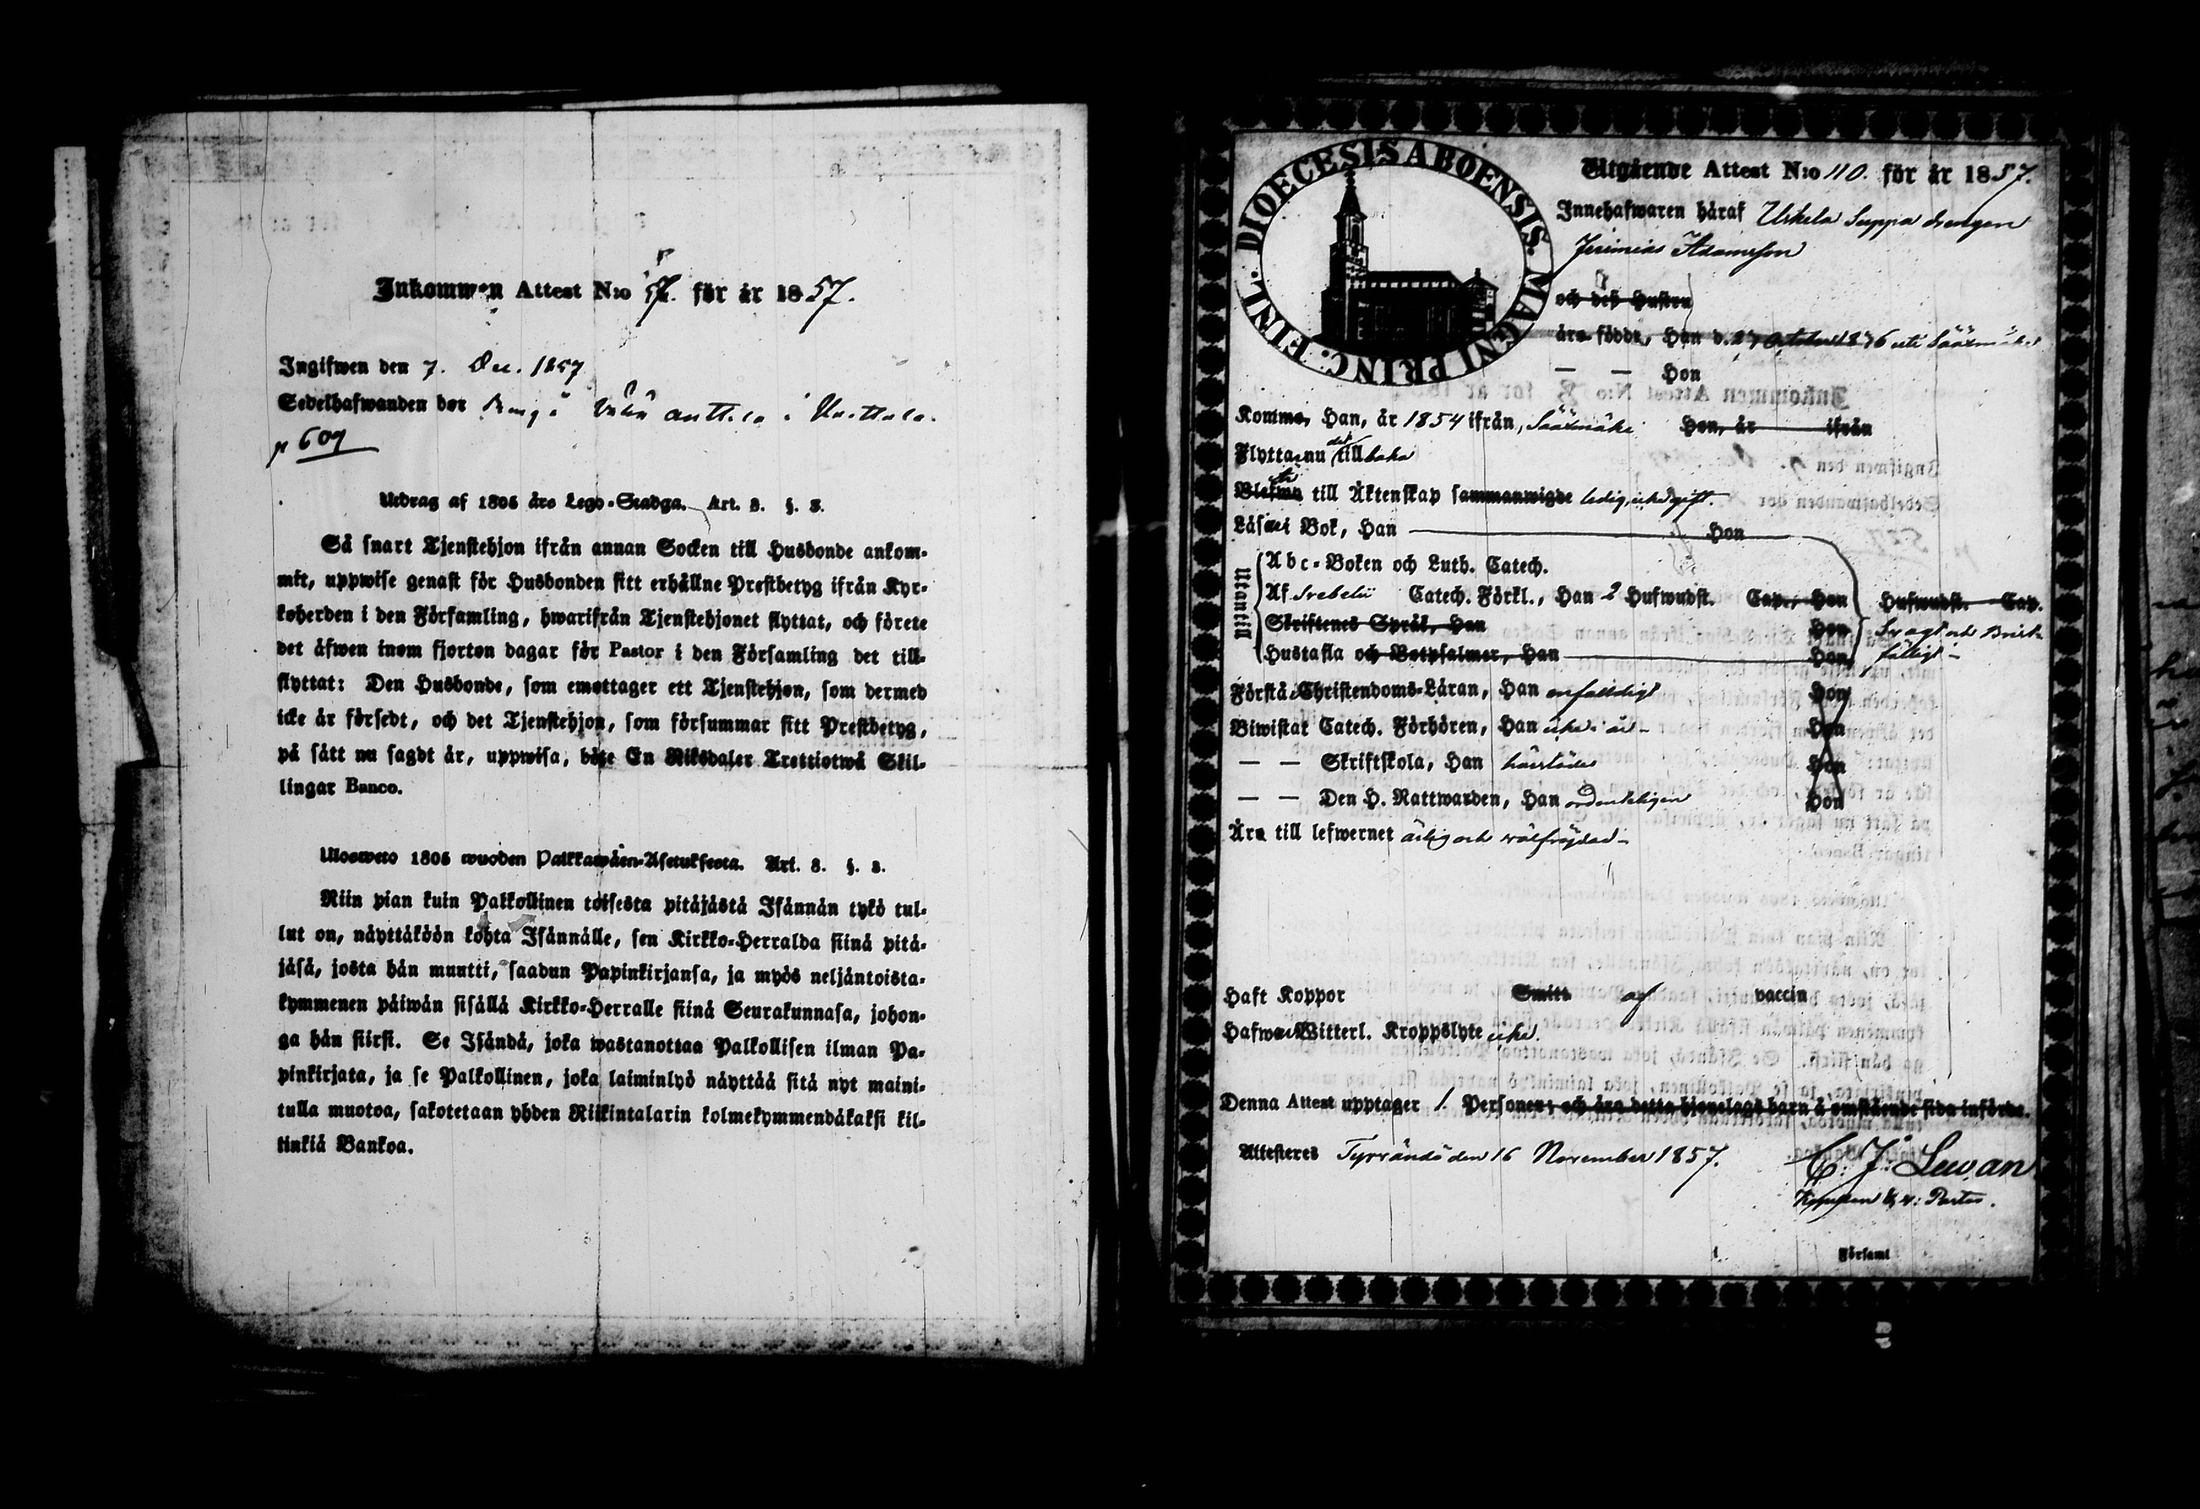 Inkommen Attest N:o för år 1857.
Ingifwen den 7. Dec. 1857
Sedelhafwanden bor i
p 609
Utdrag af 1805 års Lego-Stadga. Art. 8. §. 3.
Så snart Tjenstehjon ifrån annan Socken till Husbonde ankom-
mit, uppwise genast för Husbonden sitt erhållne Prestbetyg ifrån Kyr-
koherden i den Församling, hwarifrån Tjenstehjonet flyttat, och förete
det åfwen inom fjorton dagar för Pastor i den Församling det till-
flyttat: Den Husbonde, som emottager ett Tjenstehjon, som dermed
icke är försedt, och det Tjenstehjon, som försummar sitt Prestbetyg,
på sått nu sagdt är, uppwisa, böte En Riksdaler Trettiotwå Skil-
lingar Banco.
Uloswето 1805 wuoden Palkkawäen-Asetuksesta. Art. 8. §. 3.
Niin pian kuin Palkollinen toisesta pitäjästä Isännän tykö tul-
lut on, näyttäköön kohta Isännälle, sen Kirkko-Herralda siinä pitä-
jäsä, josta hän muutti, saadun Papinkirjansa, ja myös neljäntoista-
kymmenen päiwän sisällä Kirkko-Herralle siinä Seurakunnasa, johon-
ga hän siirsi. Se Isändä, joka wastanottaa Palkollisen ilman Pa-
pinkirjata, ja se Palkollinen, joka laiminlyö näyttää sitä nyt maini-
tulla muotoa, sakotetaan yhden Riikintalarin kolmekymmendäkaksi kil-
linkiä Bankoa.
DIOECESIS ABOENSIS. MAGNI PRINC. FINL.
Utgående Attest N:o 110. för år 1857.
Innehafwaren häraf Urkela Suppa drengen
Jeremias Adamsson
och deß Hustru
äro födde, Han d. 27 October 1836 uti Sääxmäki
— — Hon
Komme, Han, år 1854 ifrån, Sääxmäki Hon, år ifrån
Flytta nu dit tillbaka
Blefwo till Äktenskap sammanwigde ledig, icke gift.
Läsa i Bok, Han Hon
Utantill
Abc-Boken och Luth. Catech.
Af Svebelii Catech. Förkl., Han 2 Hufwudst. Cap., Hon Hufwudst. Cap.
Skriftenes Språk, Han Hon Svagt och Brist-
Hustafla och Botpsalmer, Han Hon, fälligt
Förstå Christendoms-Läran, Han enfaldigt Hon
Biwistat Catech. Förhören, Han icke i år Hon
— — Skriftskola, Han Hon
— — Den H. Nattwarden, Han ordentligen Hon
Äro till lefwernet ärlig och wälfrejdad
Haft Koppor Smitt af vaccin
Hafwa Witterl. Kroppslyte icke.
Denna Attest upptager 1. Personer; och äro detta hjonelags barn å omstående sida införde.
Attesteres Tyrvändö den 16 November 1857.
C: J: Lewan
Församl